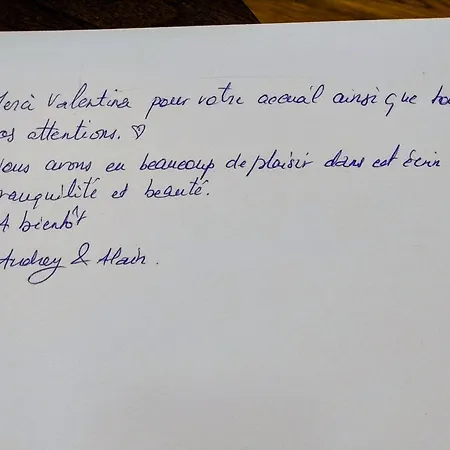 Merci Valentina pour votre accueil ainsi que tou
vos attentions. ♡
Nous avons eu beaucoup de plaisir dans cet écrin
tranquilité et beauté.
A bientôt
Audrey & Alain.